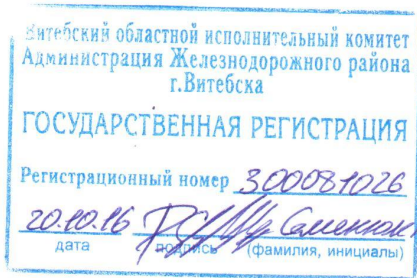 Витебский областной исполнительный комитет
Администрация Железнодорожного района
г.Витебска
ГОСУДАРСТВЕННАЯ РЕГИСТРАЦИЯ
Регистрационный номер 300081026
20.10.16
дата подпись (фамилия, инициалы)